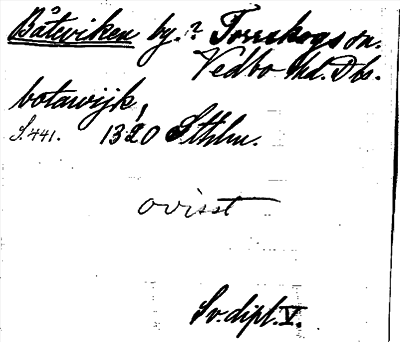 Båtviken by.? Torrskogs sn.
Vedbo hd. Dls.
botawijk,
S. 441. 1320 Sthlm.
ovisst
Sv. dipl. V.